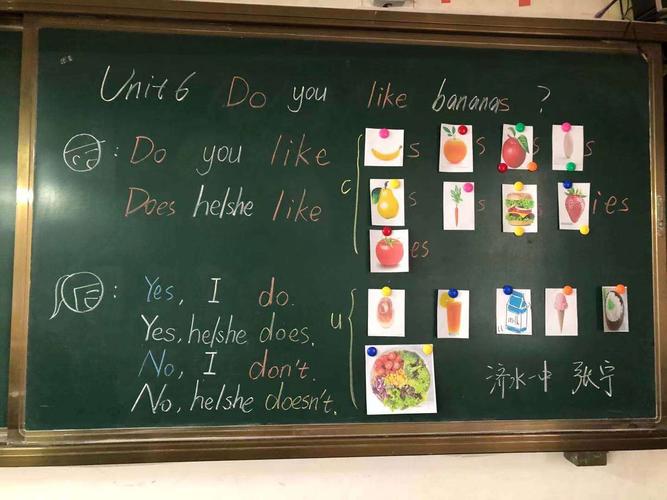 Unit 6 Do you like bananas ?
: Do you like
Does he/she like
c
s s s s
s s ies
es
: Yes, I do.
Yes, he/she does.
No, I don't.
No, he/she doesn't.
u
milk
济水一中 张宁